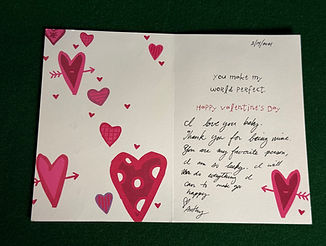 you make my
world perfect.
Happy Valentine's Day
I love you baby.
Thank you for being mine.
You are my favorite person,
I am so lucky. I will
do everything I
can to make you
happy